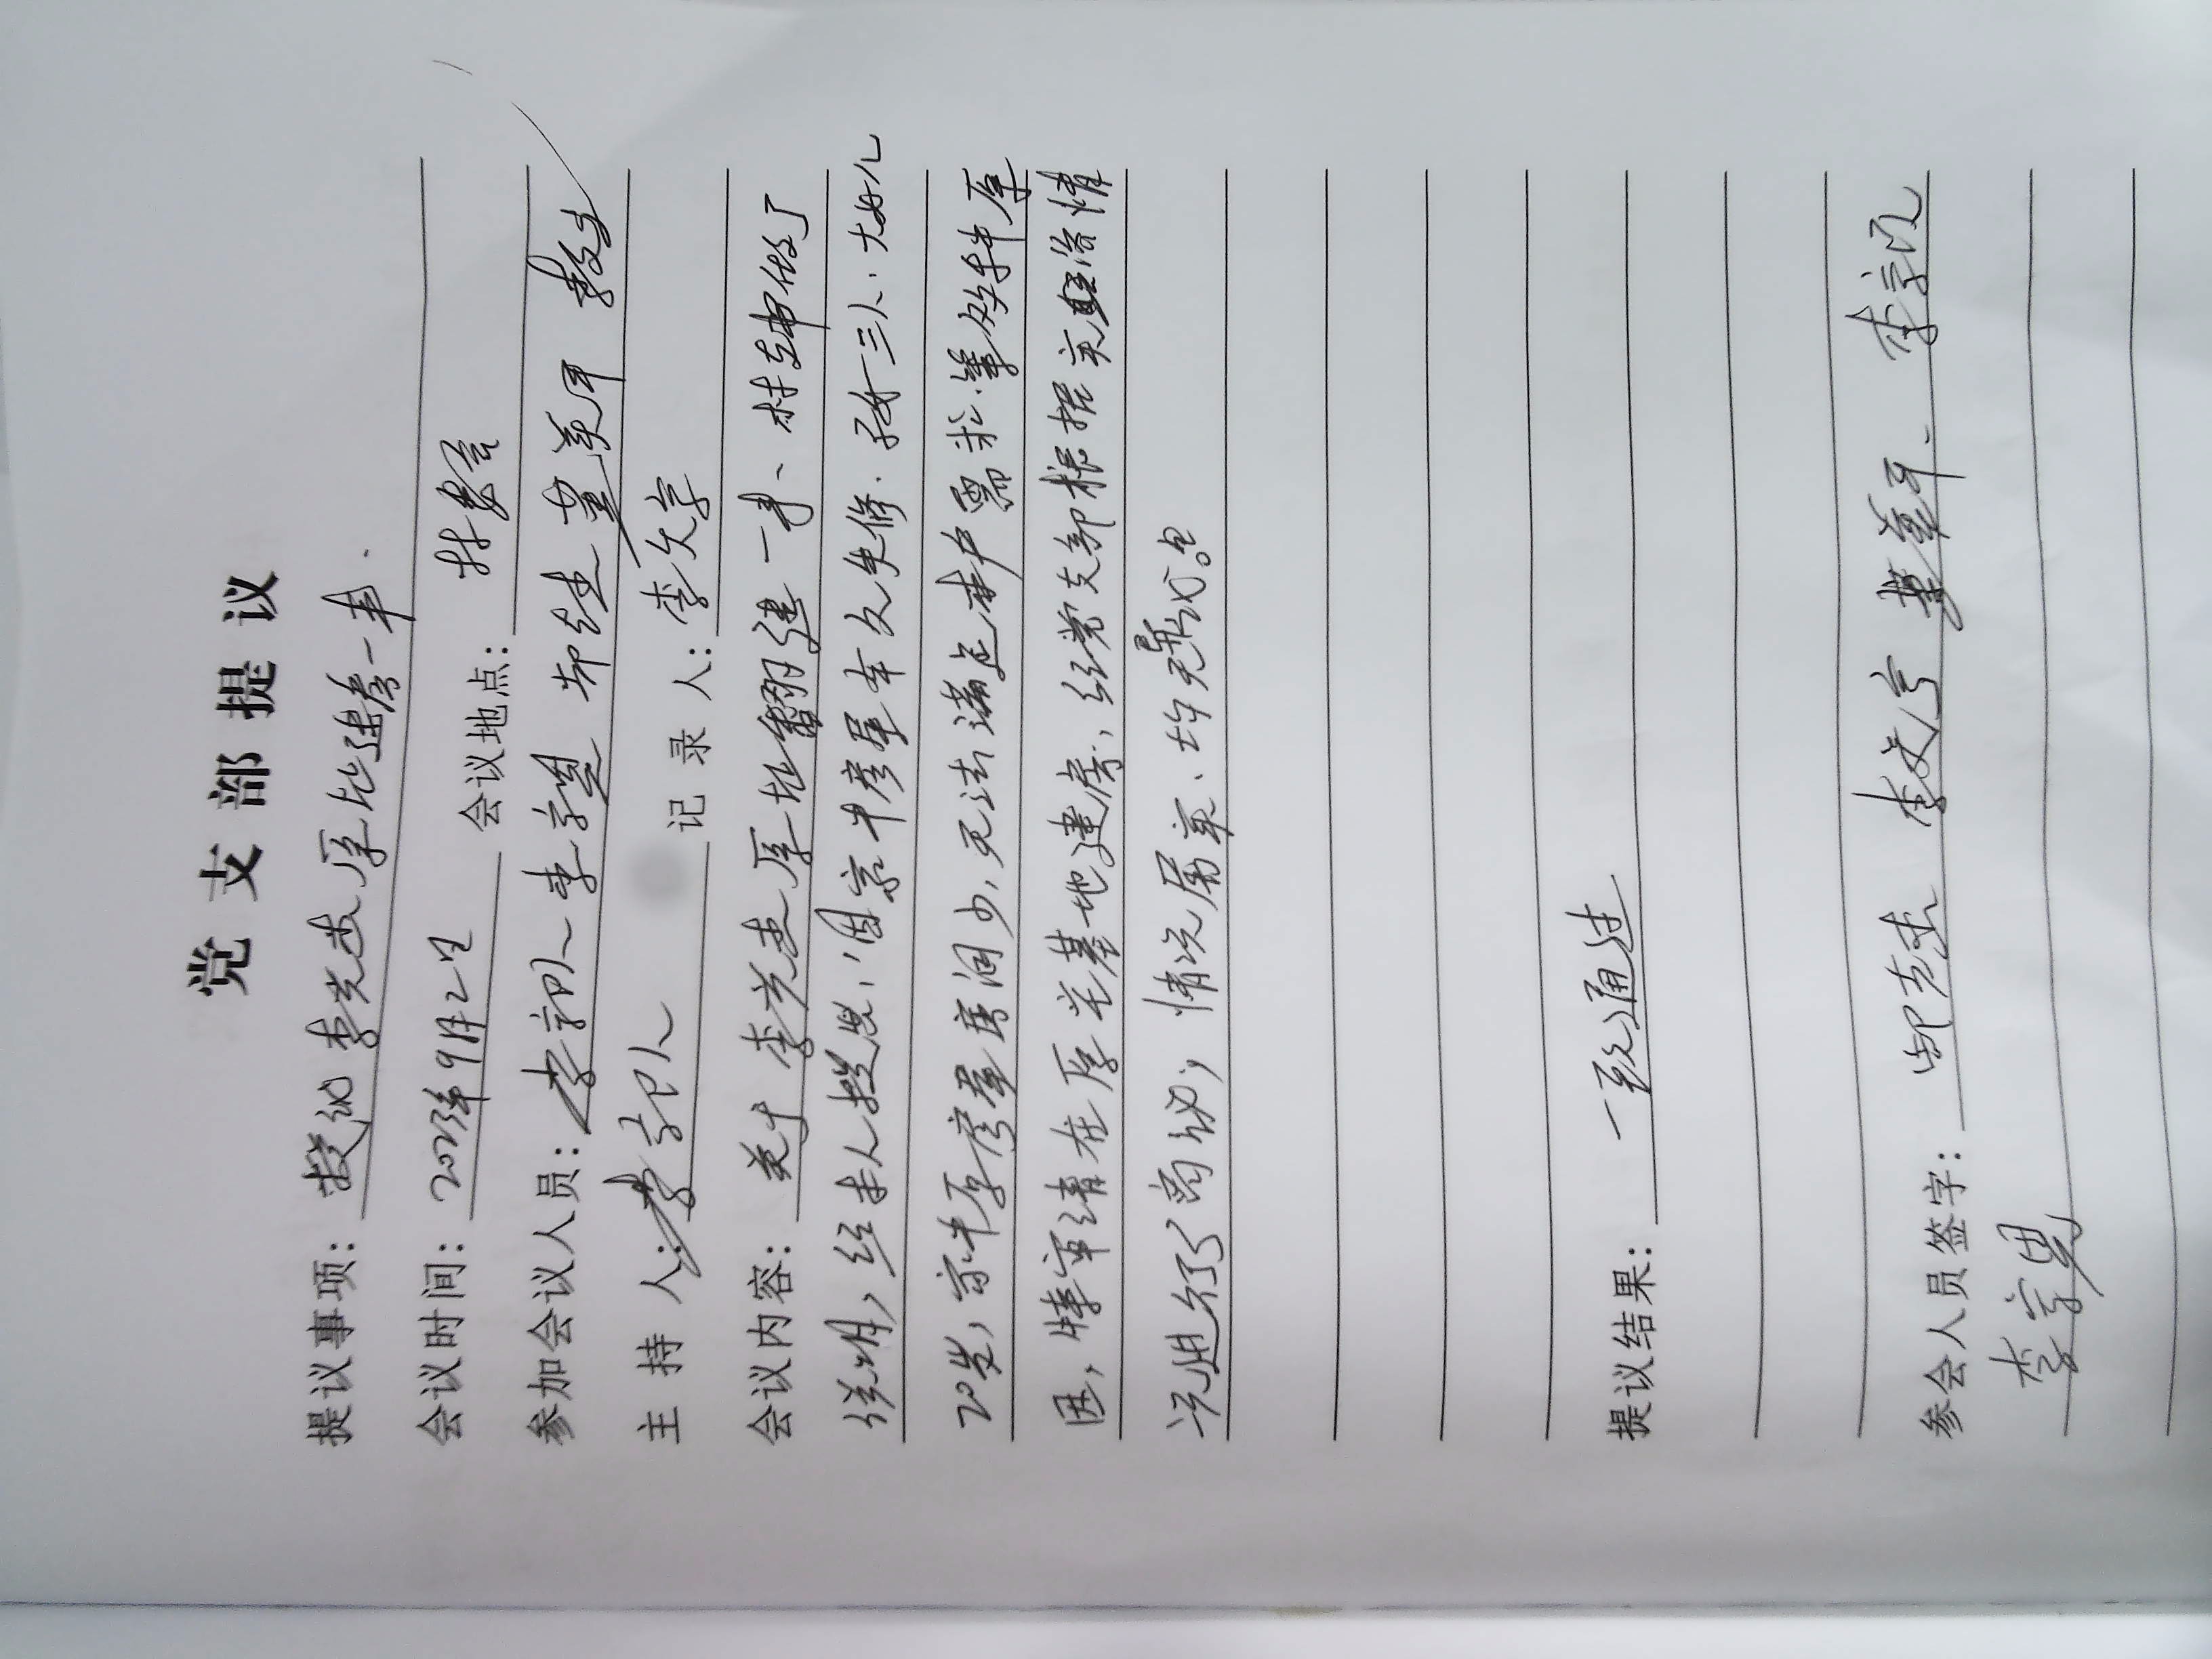 党支部提议
提议事项: 提议李兴杰原地建房一事.
会议时间: 2023年9月2日 会议地点: 村委会
参加会议人员: 李 李宗恩 董美平
主持人: 李 记录人: 李文宁
会议内容: 关于李兴杰原地翻建一事、村支部做了
说明，经本人提出，因家中房屋年久失修.子女三人.大女儿
20岁，家中原房屋房间少，无法满足本户需求等多种原
因，特审请在原宅基地建房，经党支部根据实际情
况进行了商议，情况属实、均无异议。
提议结果: 一致通过
参会人员签字: 李文宁 董美平、 李宗
李宗恩